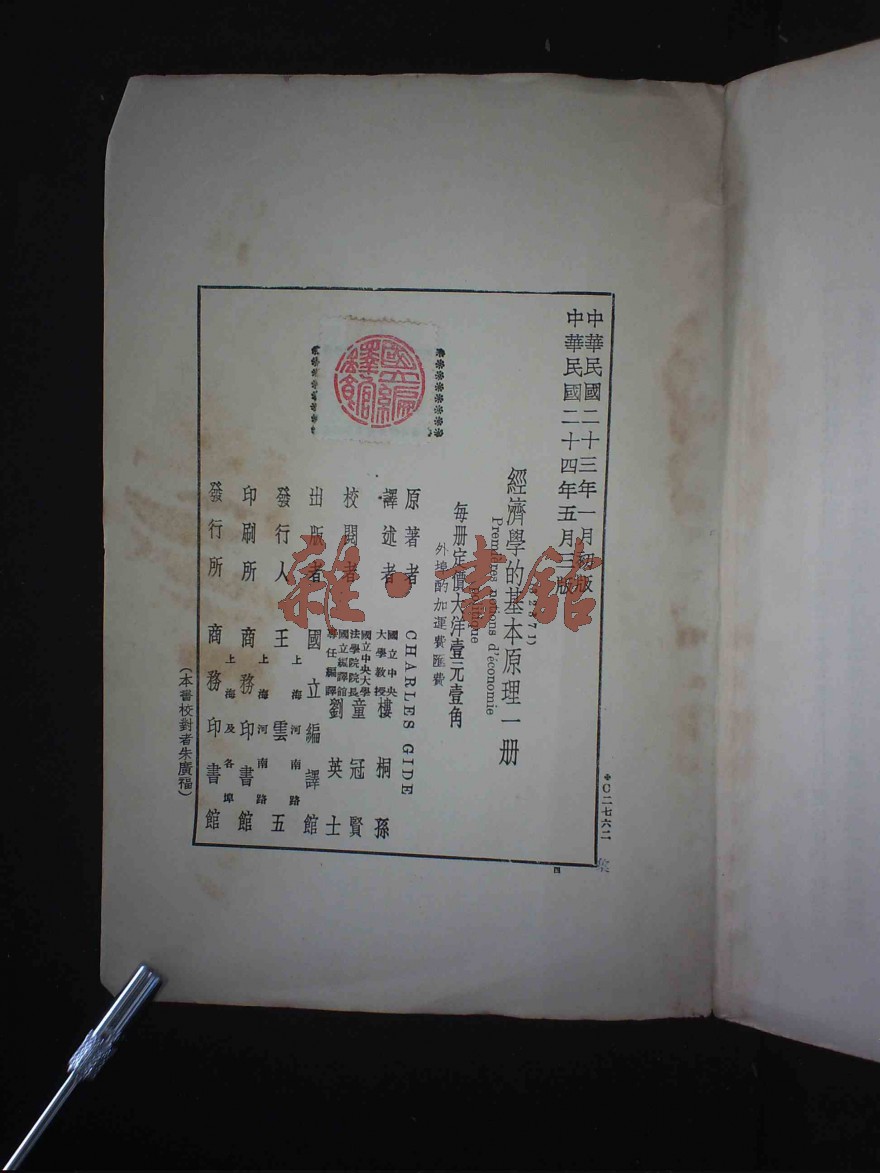 中華民國二十三年一月初版
中華民國二十四年五月三版
經濟學的基本原理一册
Premières notions d'économie
每册定價大洋壹元壹角
外埠酌加運費匯費
原著者 CHARLES GIDE
譯述者 國立中央大學教授 樓桐孫
校閱者 國立中央大學法學院院長 童冠賢
國立編譯館專任編譯 劉英士
出版者 國立編譯館
發行人 王雲五
上海河南路
印刷所 商務印書館
上海河南路
發行所 商務印書館
上海及各埠
(本書校對者朱廣福)
國立編譯館
雜·書館
◆C二七六二
四